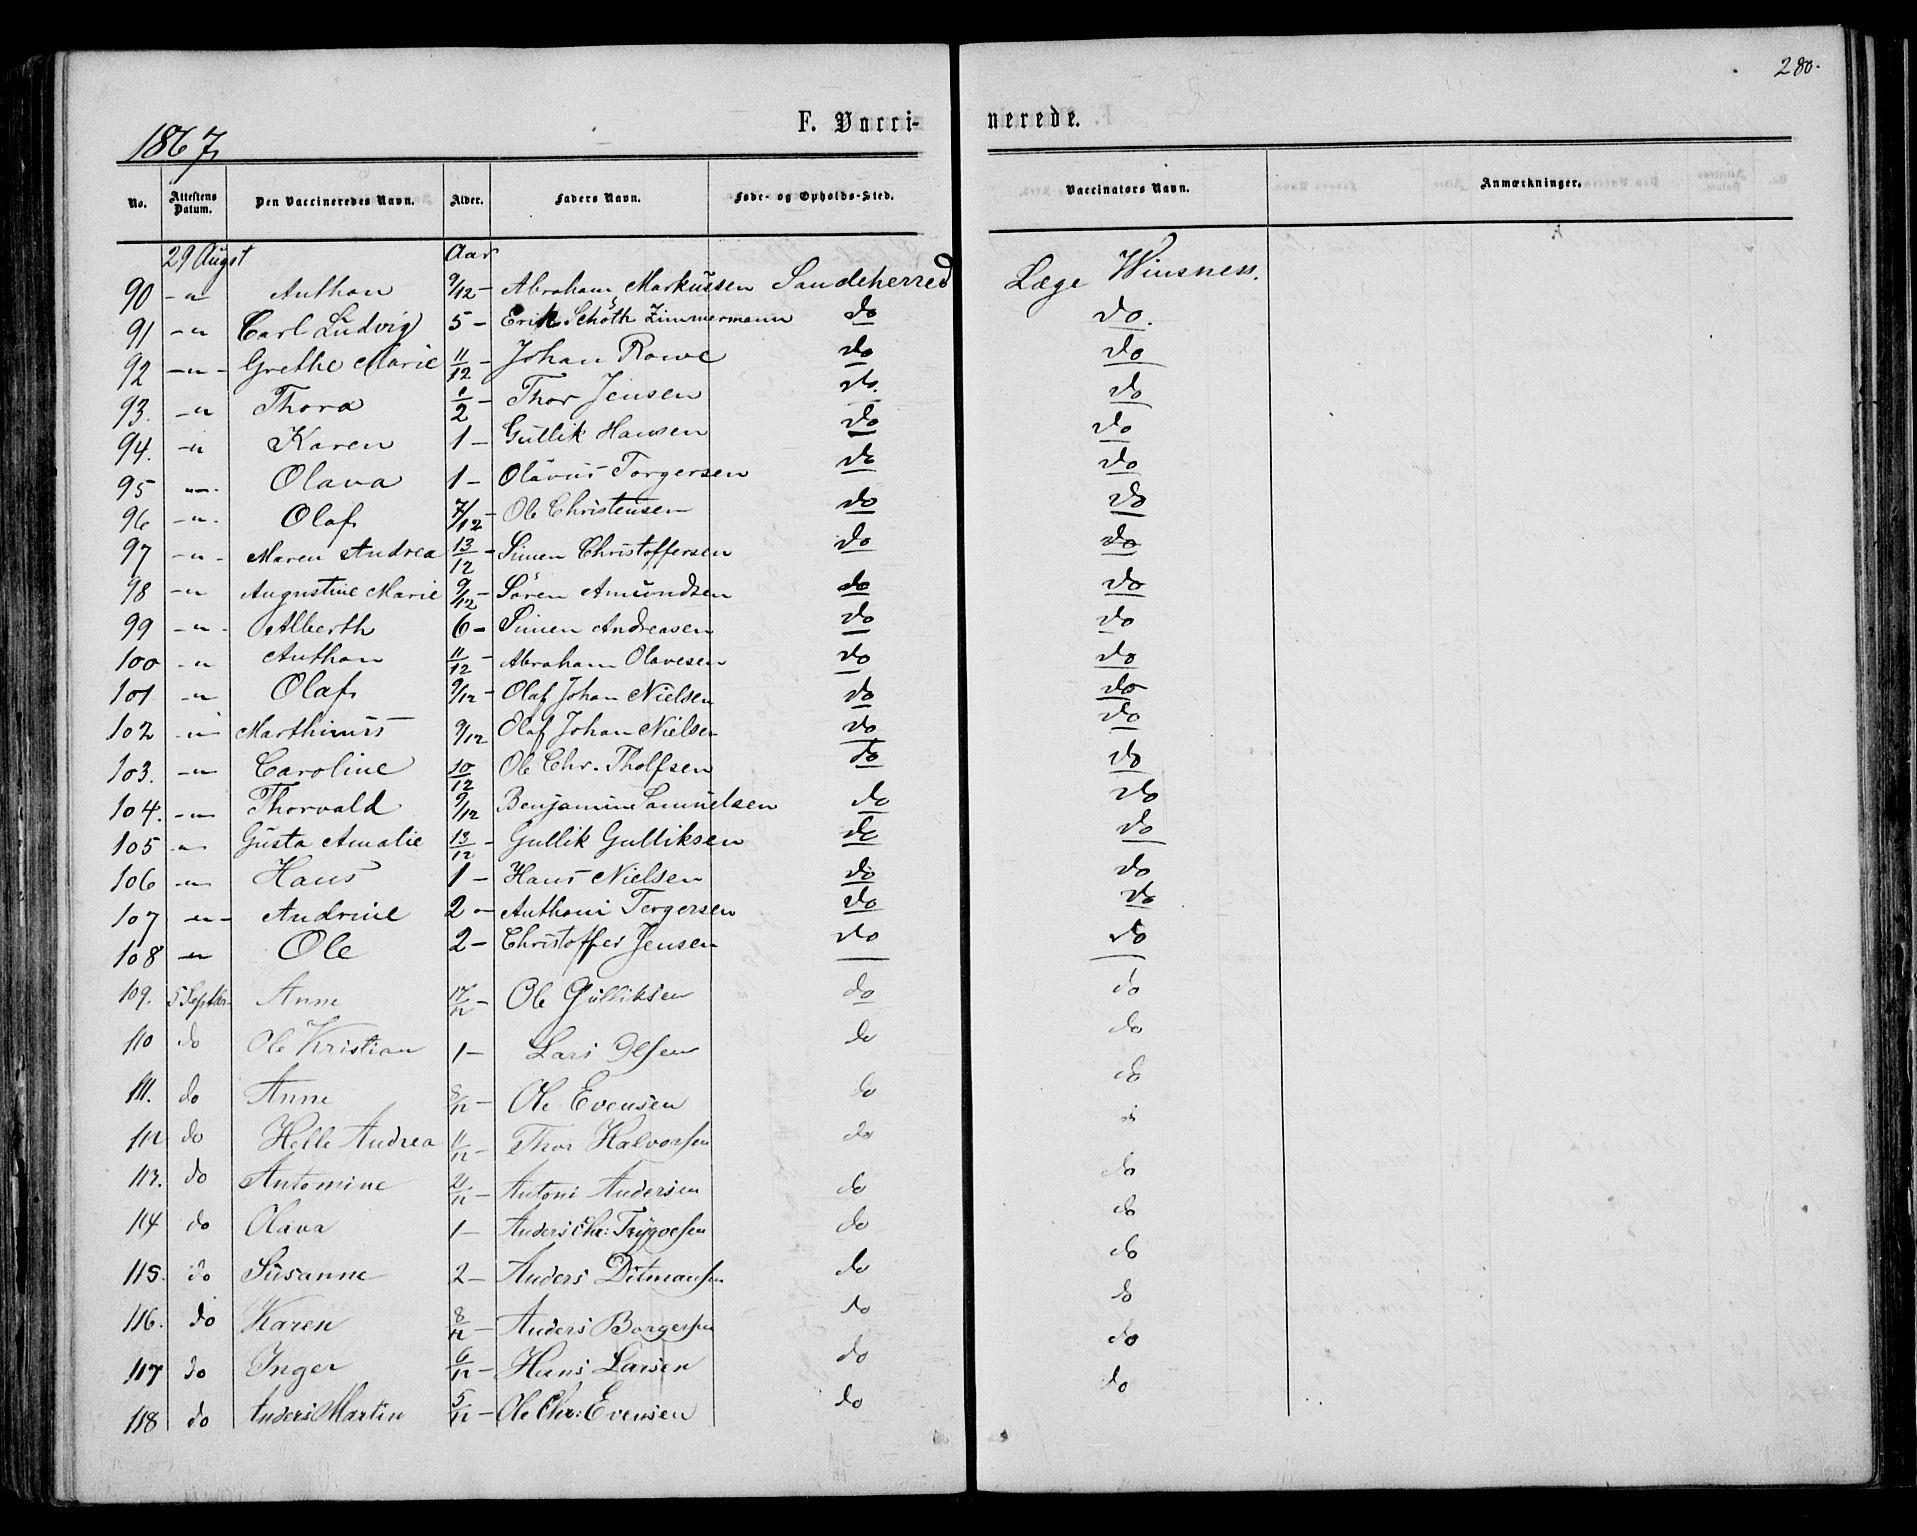 280.
1867
F. Vacci- nerede.
No. Attestens Datum. Den Vaccineredes Navn. Alder. Faders Navn. Føde- og Opholds-Sted. Vaccinators Navn. Anmærkninger.
29 Augst Aar
90 -"- Anthon 9/12 - Abraham Markussen Sandeherred Læge Winsness.
91 -"- Carl Ludvig 5 - Erik Schöth Zimmermann do do.
92 -"- Grethe Marie 11/12 - Johan Rowe do do
93. -"- Thora 1/2 - Thor Jensen do. do
94. -"- Karen 1 - Gullik Hansen do do
95 -"- Olava 1 - Olavus Torgersen do do
96 -"- Olaf 7/12 - Ole Christensen do do
97 -"- Maren Andrea 13/12 - Simen Christoffersen do do
98 -"- Augustine Marie 9/12 - Sören Amundsen do do
99 -"- Alberth 6 - Simen Andreasen do do
100 -"- Anthon 11/12 - Abraham Olavesen do do
101 -"- Olaf 9/12 - Olaf Johan Nielsen do do
102 -"- Marthinus 9/12 Olaf Johan Nielsen do do
103. -"- Caroline 10/12 Ole Chr. Tholfsen do do
104. -"- Thorvald 9/12 Benjamin Samuelsen do do
105 -"- Gusta Amalie 13/12 - Gullik Gulliksen do do
106 -"- Hans 1 - Hans Nielsen do do
107 -"- Andrine 2 - Anthoni Torgersen do do
108 -"- Ole 2 - Christoffer Jensen do do
109. 5 Septbr. Anne 17/12 - Ole Gulliksen do do
110 do Ole Kristian 1 - Lars Olsen do do
111. do Anne 8/12 - Ole Evensen do do
112 do Helle Andrea 11/12 - Thor Halvorsen do do
113. do Antomine 21/12 - Antoni Andersen do do
114 do Olava 1 - Anders Chr: Trygvesen do do
115. do Susanne 2 - Anders Ditmansen do do
116. do Karen 8/12 - Anders Borgersen do do
117 do Inger 6/12 - Hans Larsen do do
118 do Anders Martin 5/12 - Ole Chr: Evensen do do